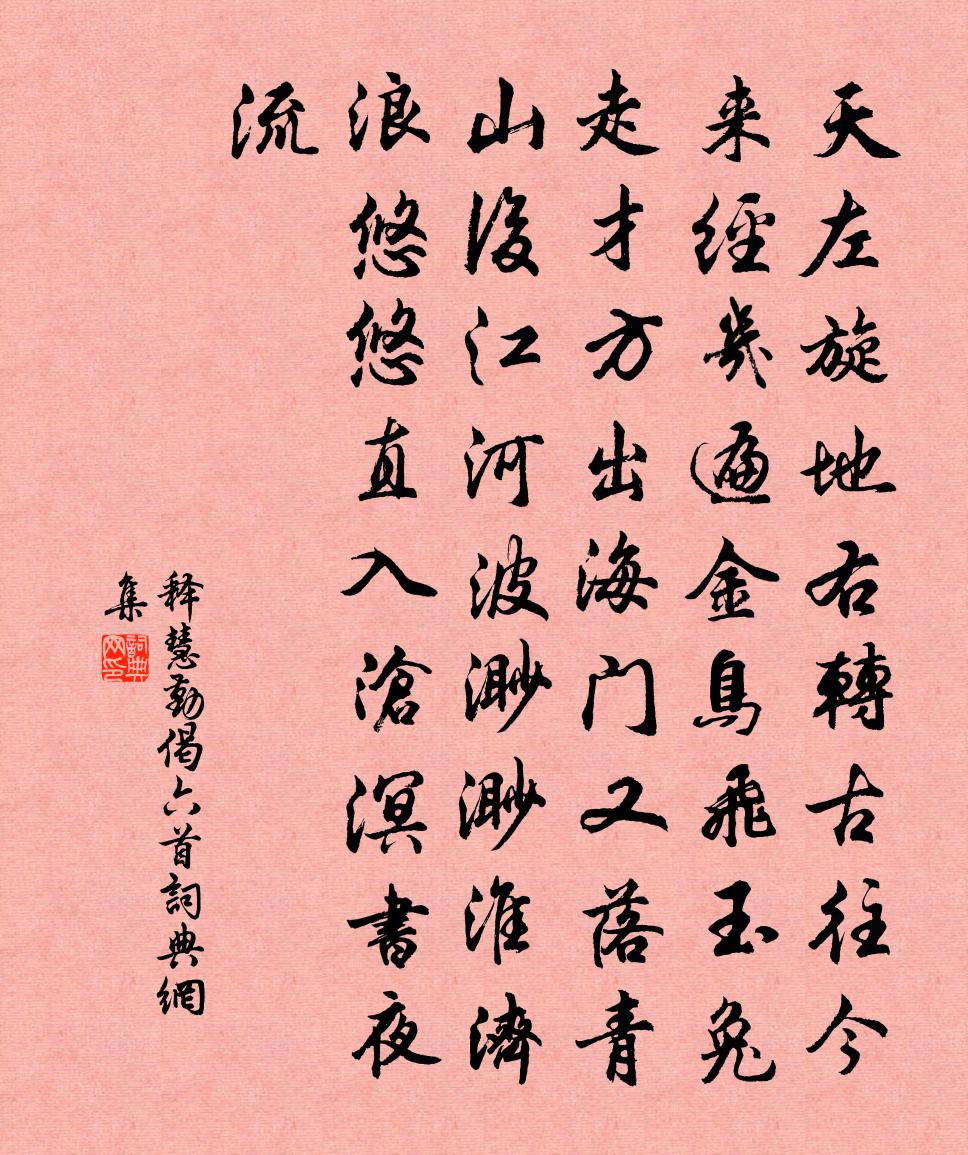 天左旋地右轉古往今
来經幾遍金烏飛玉兔
走才方出海门又落青
山後江河波渺渺淮濟
浪悠悠直入滄溟書夜
流
释慧勤偈六首詞典網
集
詞典
网印